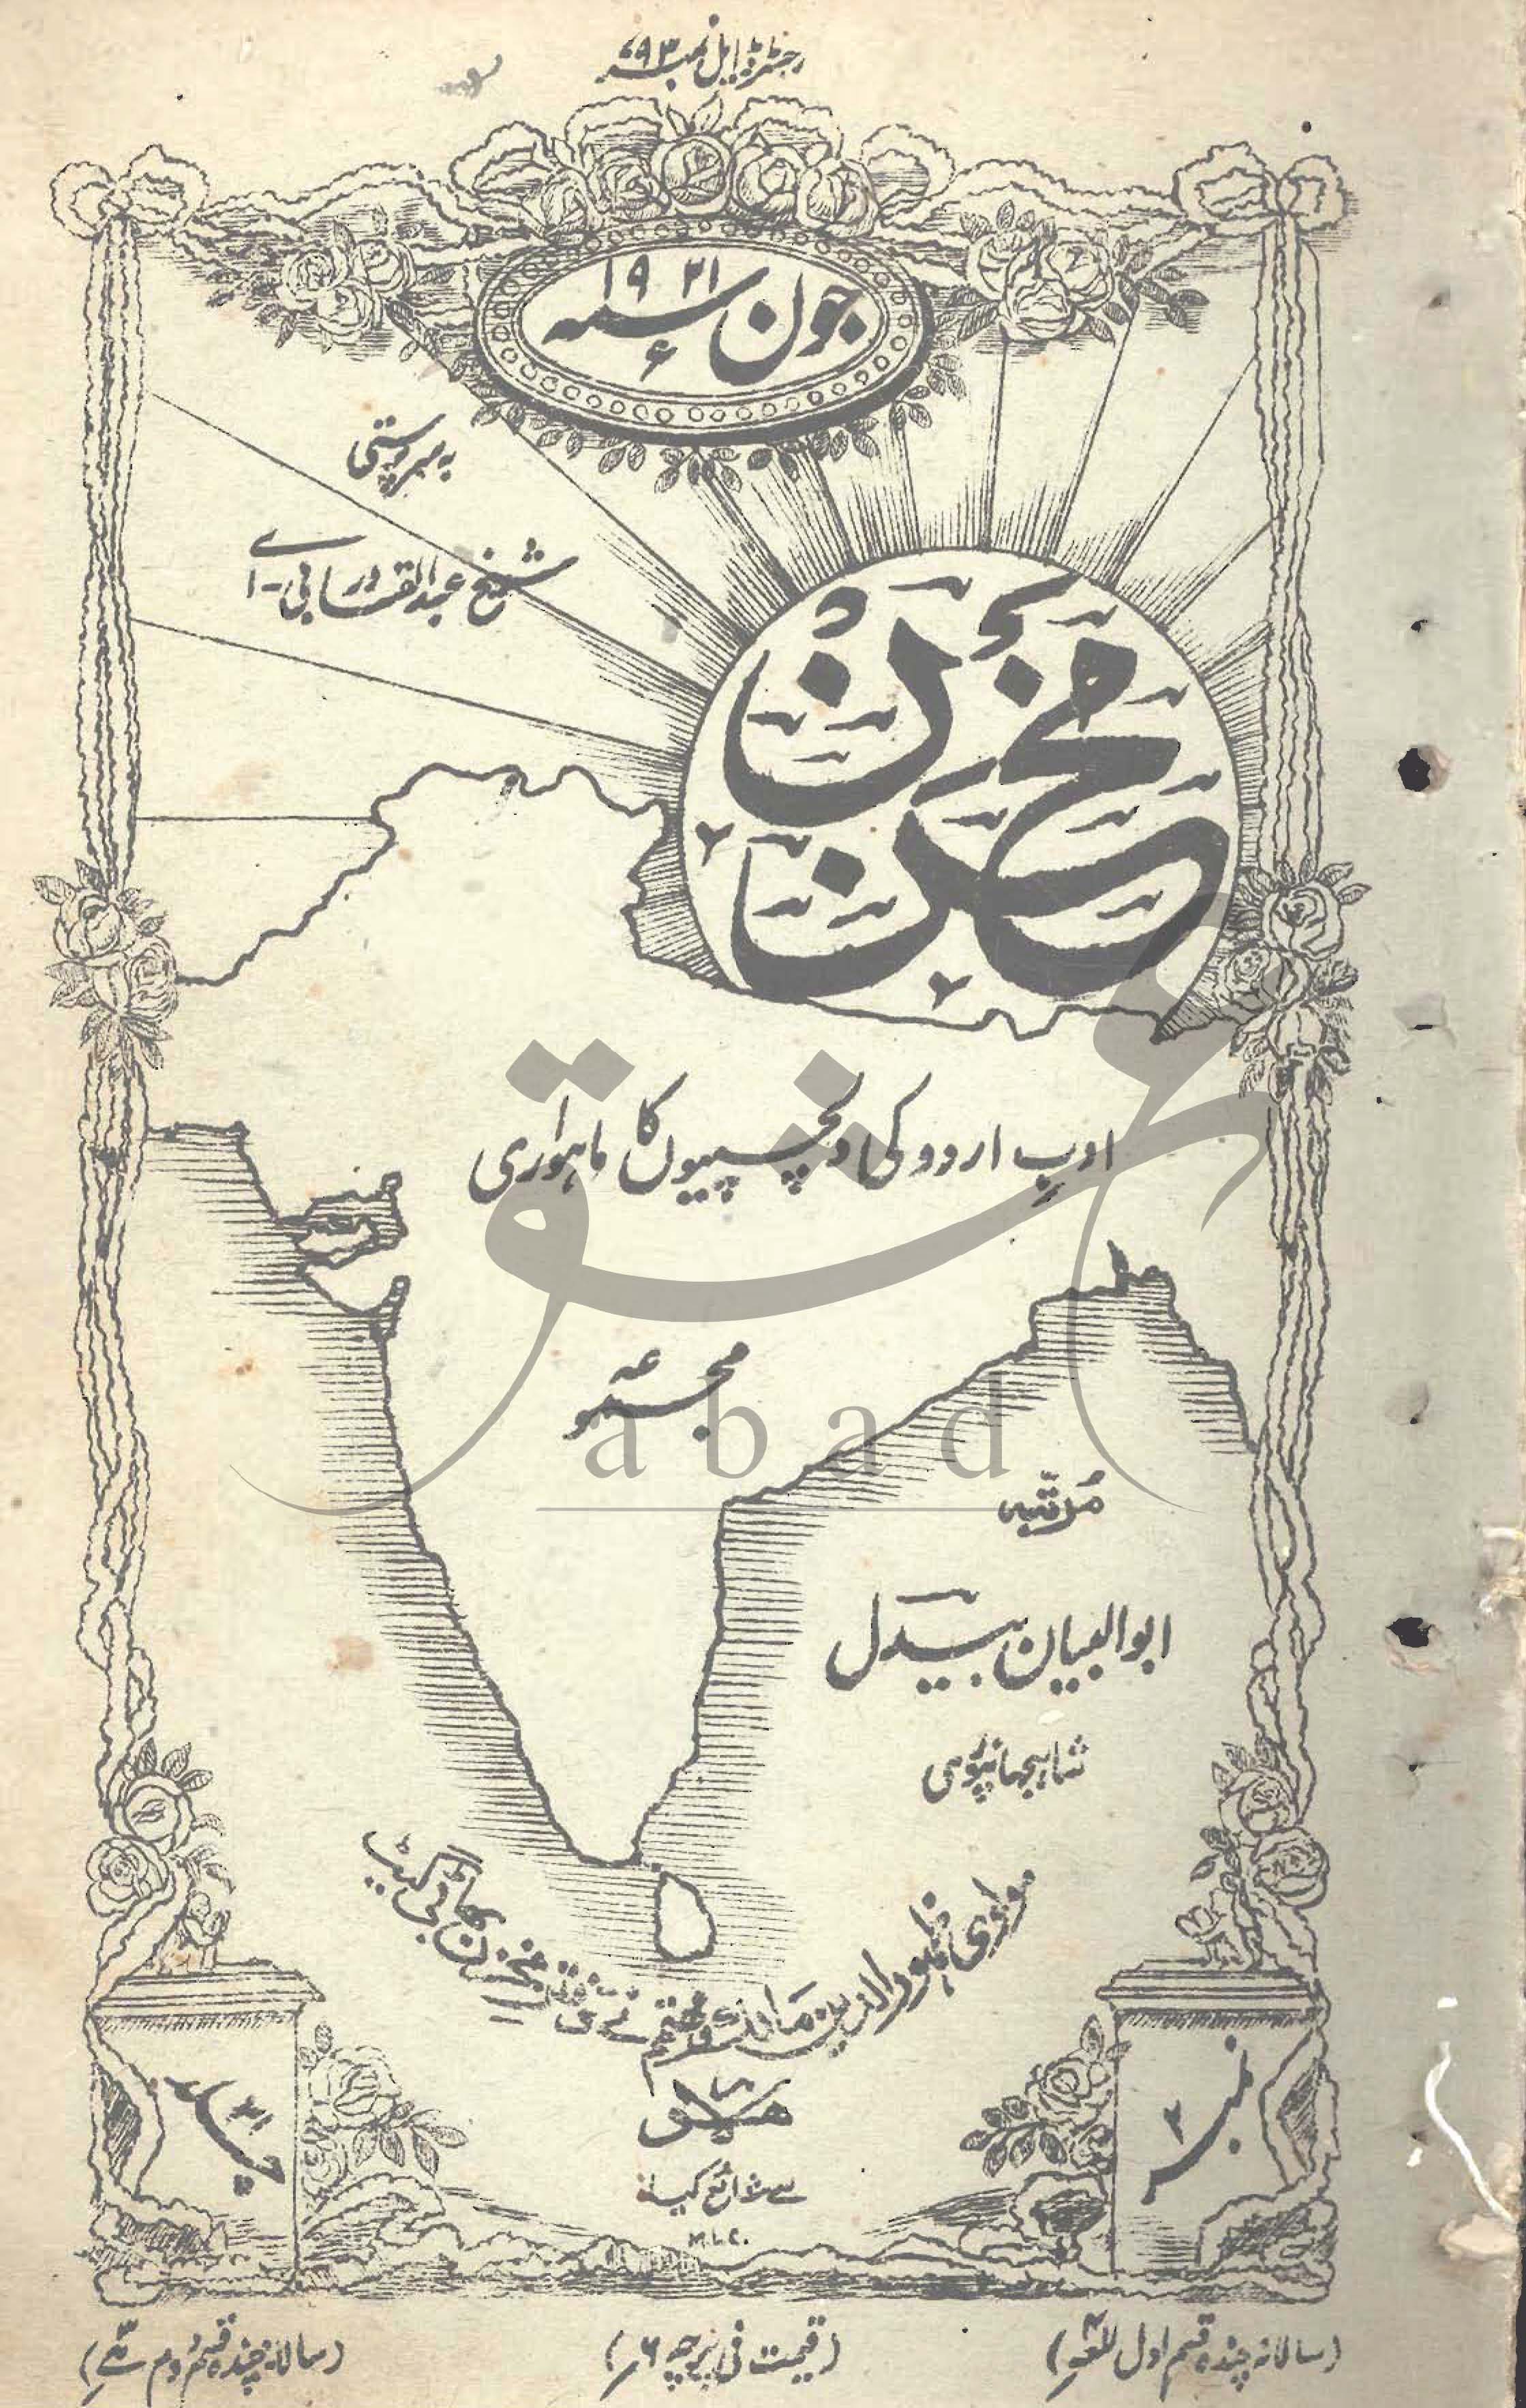 رجسٹرڈ ایل نمبر ۶۹۳
جون سنہ ۱۹۲۱ ء
بہ سرپرستی
شیخ عبدالقادر بی-اے
مخزن
ادبِ اردو کی دلچسپیوں کا ماہواری
مجموعہ
مُرتّبہ
ابوالبیان بیدل
شاہجہانپوری
مولوی ظہورالدین مالک و مہتمم نے دفتر مخزن بھاٹی گیٹ
لاہور
سے شائع کیا
M.L.C.
جلد ۴۱
نمبر ۲
(سالانہ چندہ قسم اول)
(قیمت فی پرچہ ۶ر)
(سالانہ چندہ قسم دوم)
عشق
abad